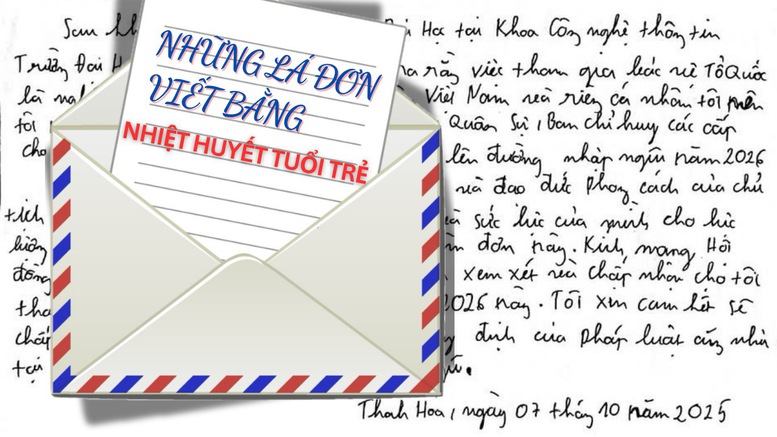 NHỮNG LÁ ĐƠN
VIẾT BẰNG
NHIỆT HUYẾT TUỔI TRẺ
Sau Đại Học tại Khoa Công nghệ thông tin
Trường Đại rằng việc tham gia bảo vệ Tổ Quốc
là Việt Nam và riêng cá nhân tôi nên
tôi Quân Sự, Ban chỉ huy các cấp
cho lên đường nhập ngũ năm 2026
và đạo đức phong cách của chủ
tịch sức lực của mình cho lực
lượng đơn này. Kính mong Hội
đồng xem xét và chấp nhận cho tôi
tha 2026 này. Tôi xin cam kết sẽ
chấp định của pháp luật cũng như
tại
Thanh Hoá, ngày 07 tháng 10 năm 2025